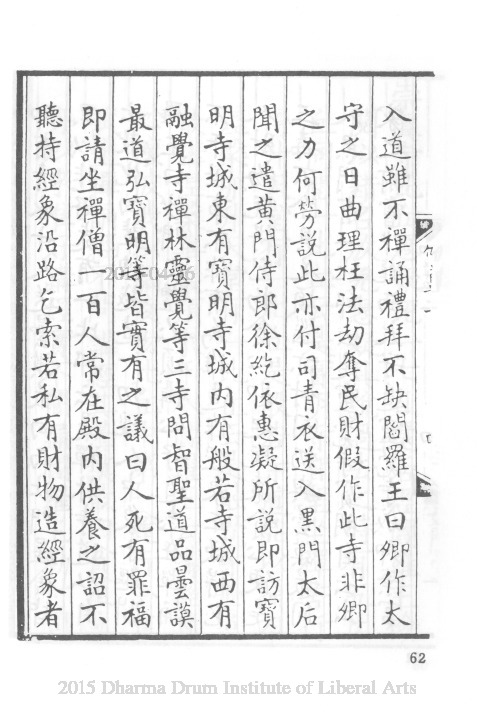 入道雖不禪誦禮拜不缺閻羅王曰卿作太
守之日曲理枉法劫奪民財假作此寺非卿
之力何勞說此亦付司青衣送入黑門太后
聞之遣黄門侍郎徐紇依惠凝所說即訪寶
明寺城東有寶明寺城內有般若寺城西有
融覺寺禪林靈覺等三寺問智聖道品曇謨
最道弘寶明等皆實有之議曰人死有罪福
即請坐禪僧一百人常在殿內供養之詔不
聽持經象沿路乞索若私有財物造經象者
62
2015 Dharma Drum Institute of Liberal Arts